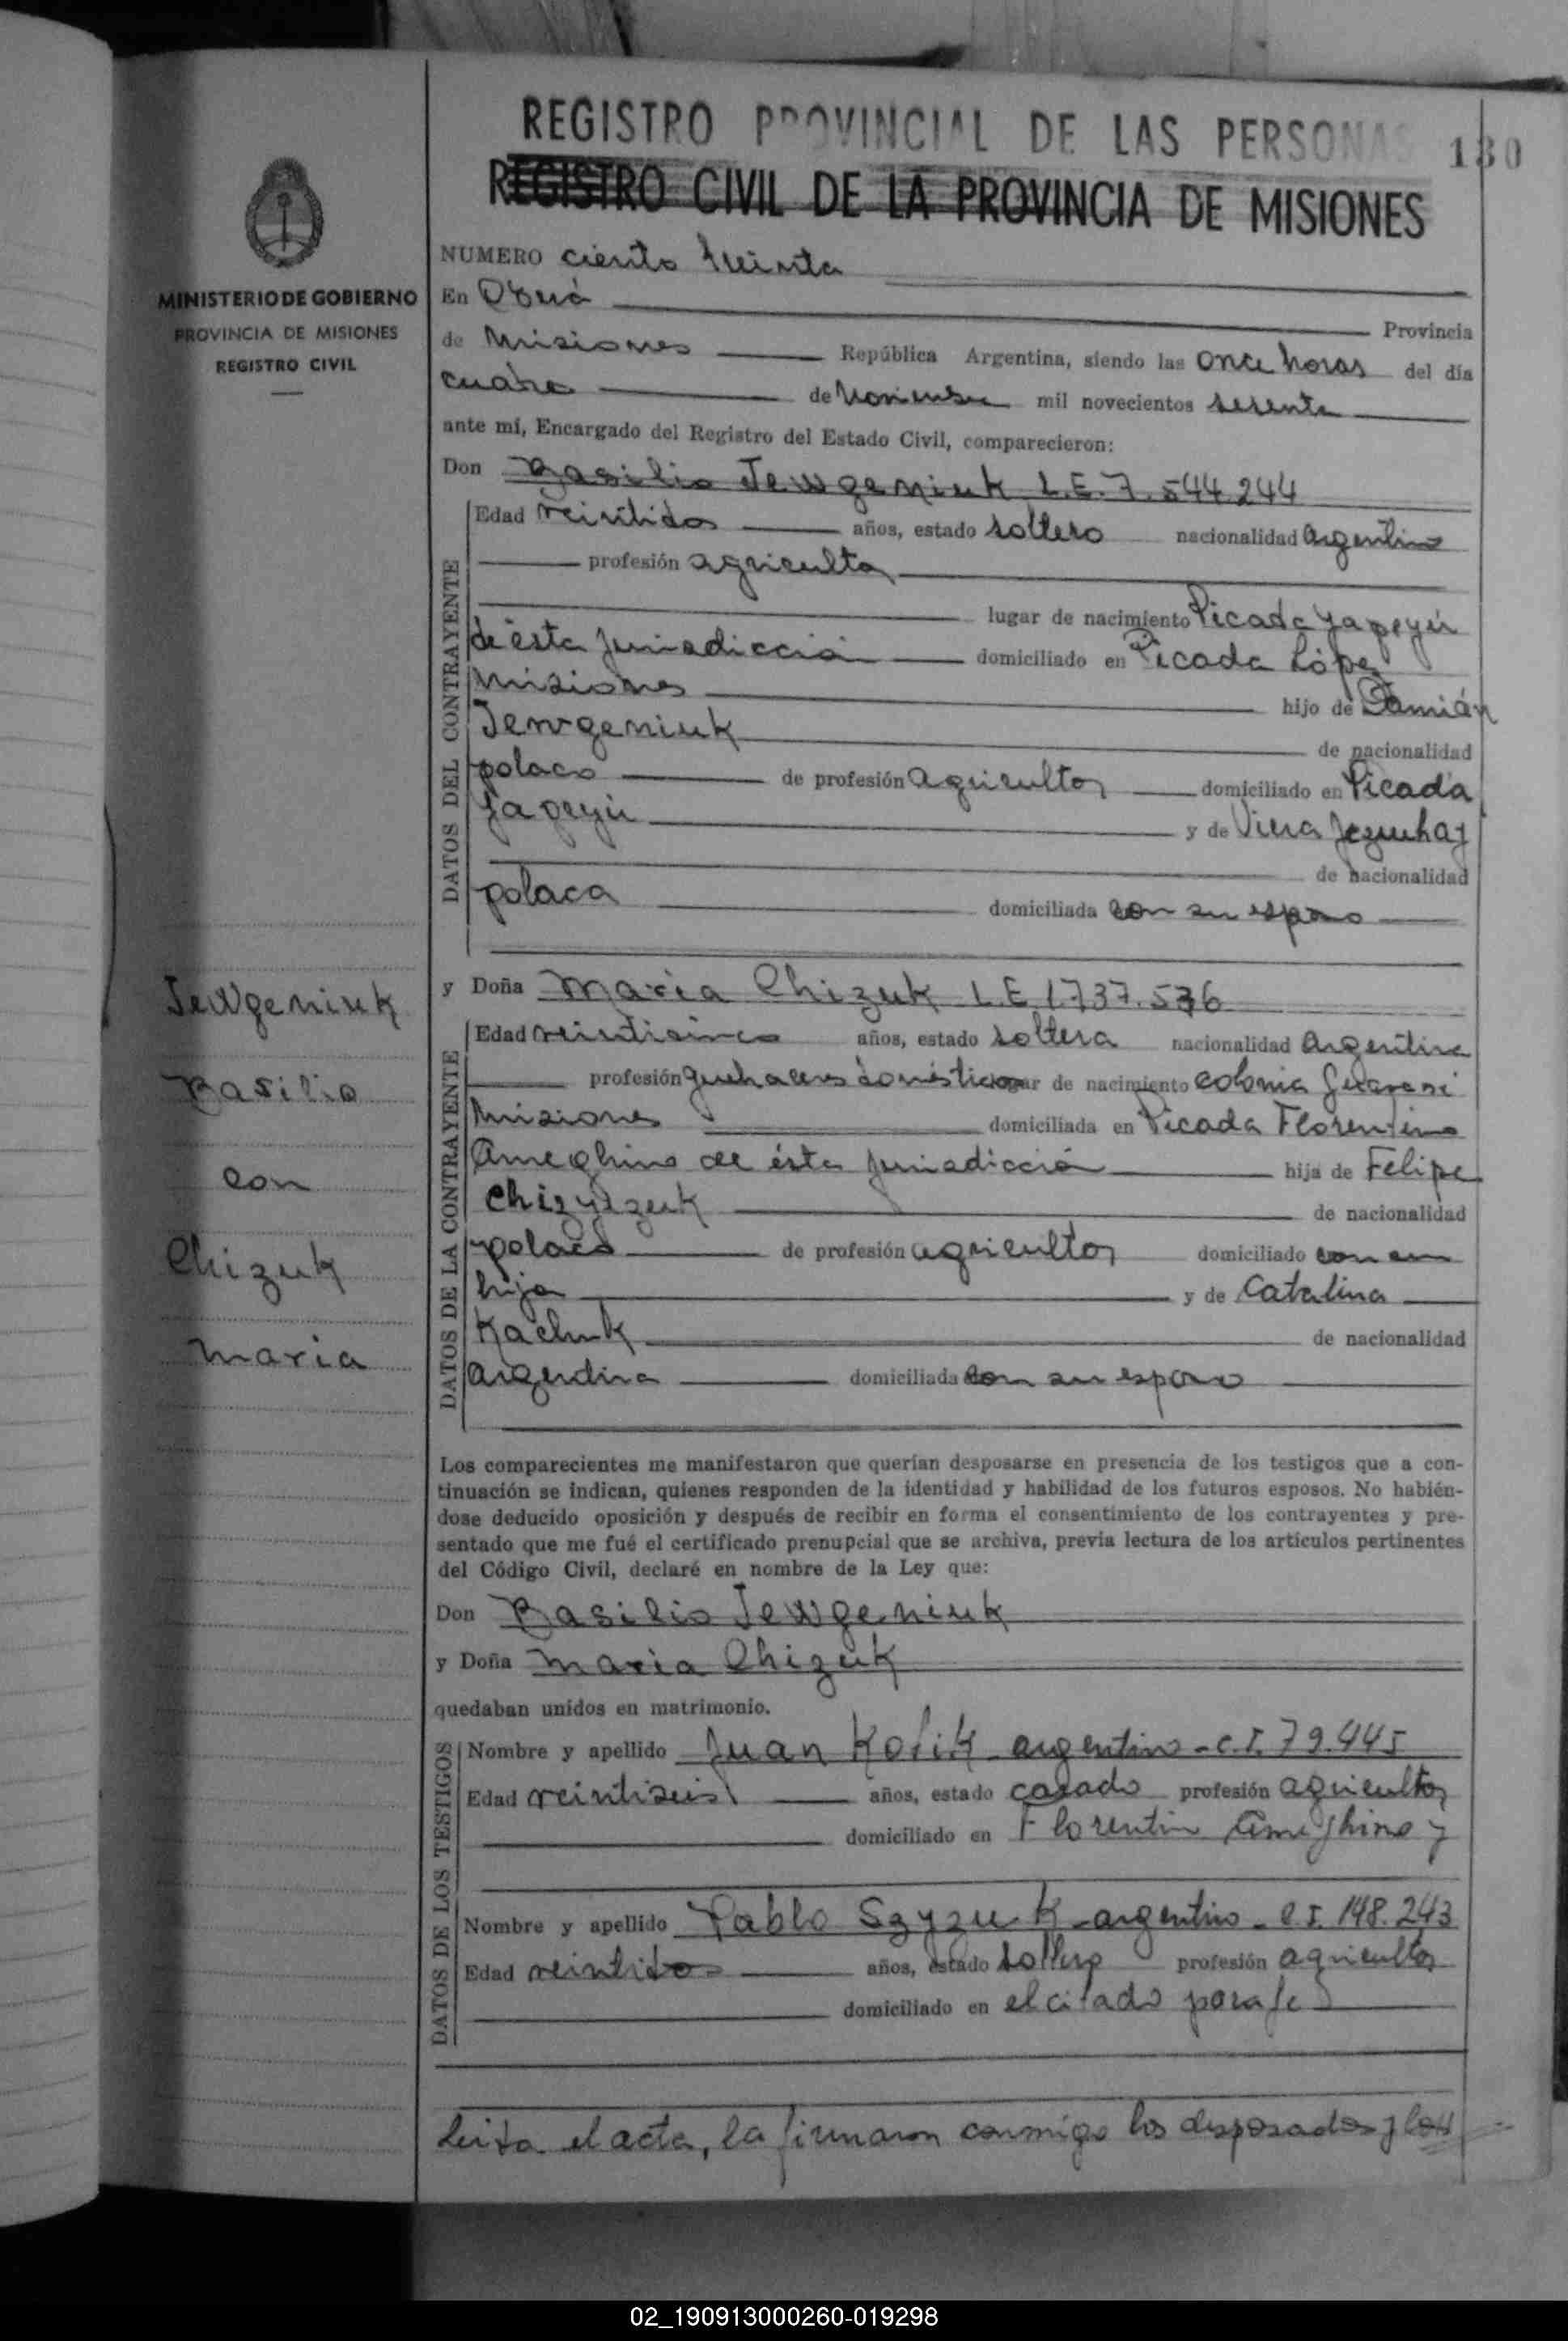 REGISTRO PROVINCIAL DE LAS PERSONAS 130
REGISTRO CIVIL DE LA PROVINCIA DE MISIONES
MINISTERIO DE GOBIERNO
PROVINCIA DE MISIONES
REGISTRO CIVIL
NUMERO ciento treinta
En Oberá Provincia
de Misiones República Argentina, siendo las once horas del día
cuatro de Noviembre mil novecientos sesenta
ante mí, Encargado del Registro del Estado Civil, comparecieron:
Don Basilio Jewgeniuk L.E. 7.544.244
DATOS DEL CONTRAYENTE
Edad veintidos años, estado soltero nacionalidad argentino
profesión agricultor
lugar de nacimiento Picada Yapeyú
de ésta jurisdicción domiciliado en Picada López
Misiones hijo de Damián
Jewgeniuk de nacionalidad
polaco de profesión agricultor domiciliado en Picada
Yapeyú y de Viera
de nacionalidad
polaca domiciliada con su esposo
Jewgeniuk
Basilio
con
Chizuk
Maria
y Doña Maria Chizuk L.E 1.737.536
DATOS DE LA CONTRAYENTE
Edad veinticinco años, estado soltera nacionalidad argentina
profesión quehaceres domésticos lugar de nacimiento colonia Guaraní
Misiones domiciliada en Picada Florentino
Ameghino de ésta jurisdicción hija de Felipe
Chizyszuk de nacionalidad
polaco de profesión agricultor domiciliado con su
hija y de Catalina
Kachuk de nacionalidad
argentina domiciliada con su esposo
Los comparecientes me manifestaron que querían desposarse en presencia de los testigos que a con-
tinuación se indican, quienes responden de la identidad y habilidad de los futuros esposos. No habién-
dose deducido oposición y después de recibir en forma el consentimiento de los contrayentes y pre-
sentado que me fué el certificado prenupcial que se archiva, previa lectura de los artículos pertinentes
del Código Civil, declaré en nombre de la Ley que:
Don Basilio Jewgeniuk
y Doña Maria Chizuk
quedaban unidos en matrimonio.
DATOS DE LOS TESTIGOS
Nombre y apellido Juan Kotik argentino - C.I. 79.445
Edad veintiseis años, estado casado profesión agricultor
domiciliado en Florentin Ameghino y
Nombre y apellido Pablo Szyzuk - argentino - C.I. 148.243
Edad veintidos años, estado soltero profesión agricultor
domiciliado en el citado paraje
Leida el acta, la firmaron conmigo los desposados y los
02_190913000260-019298